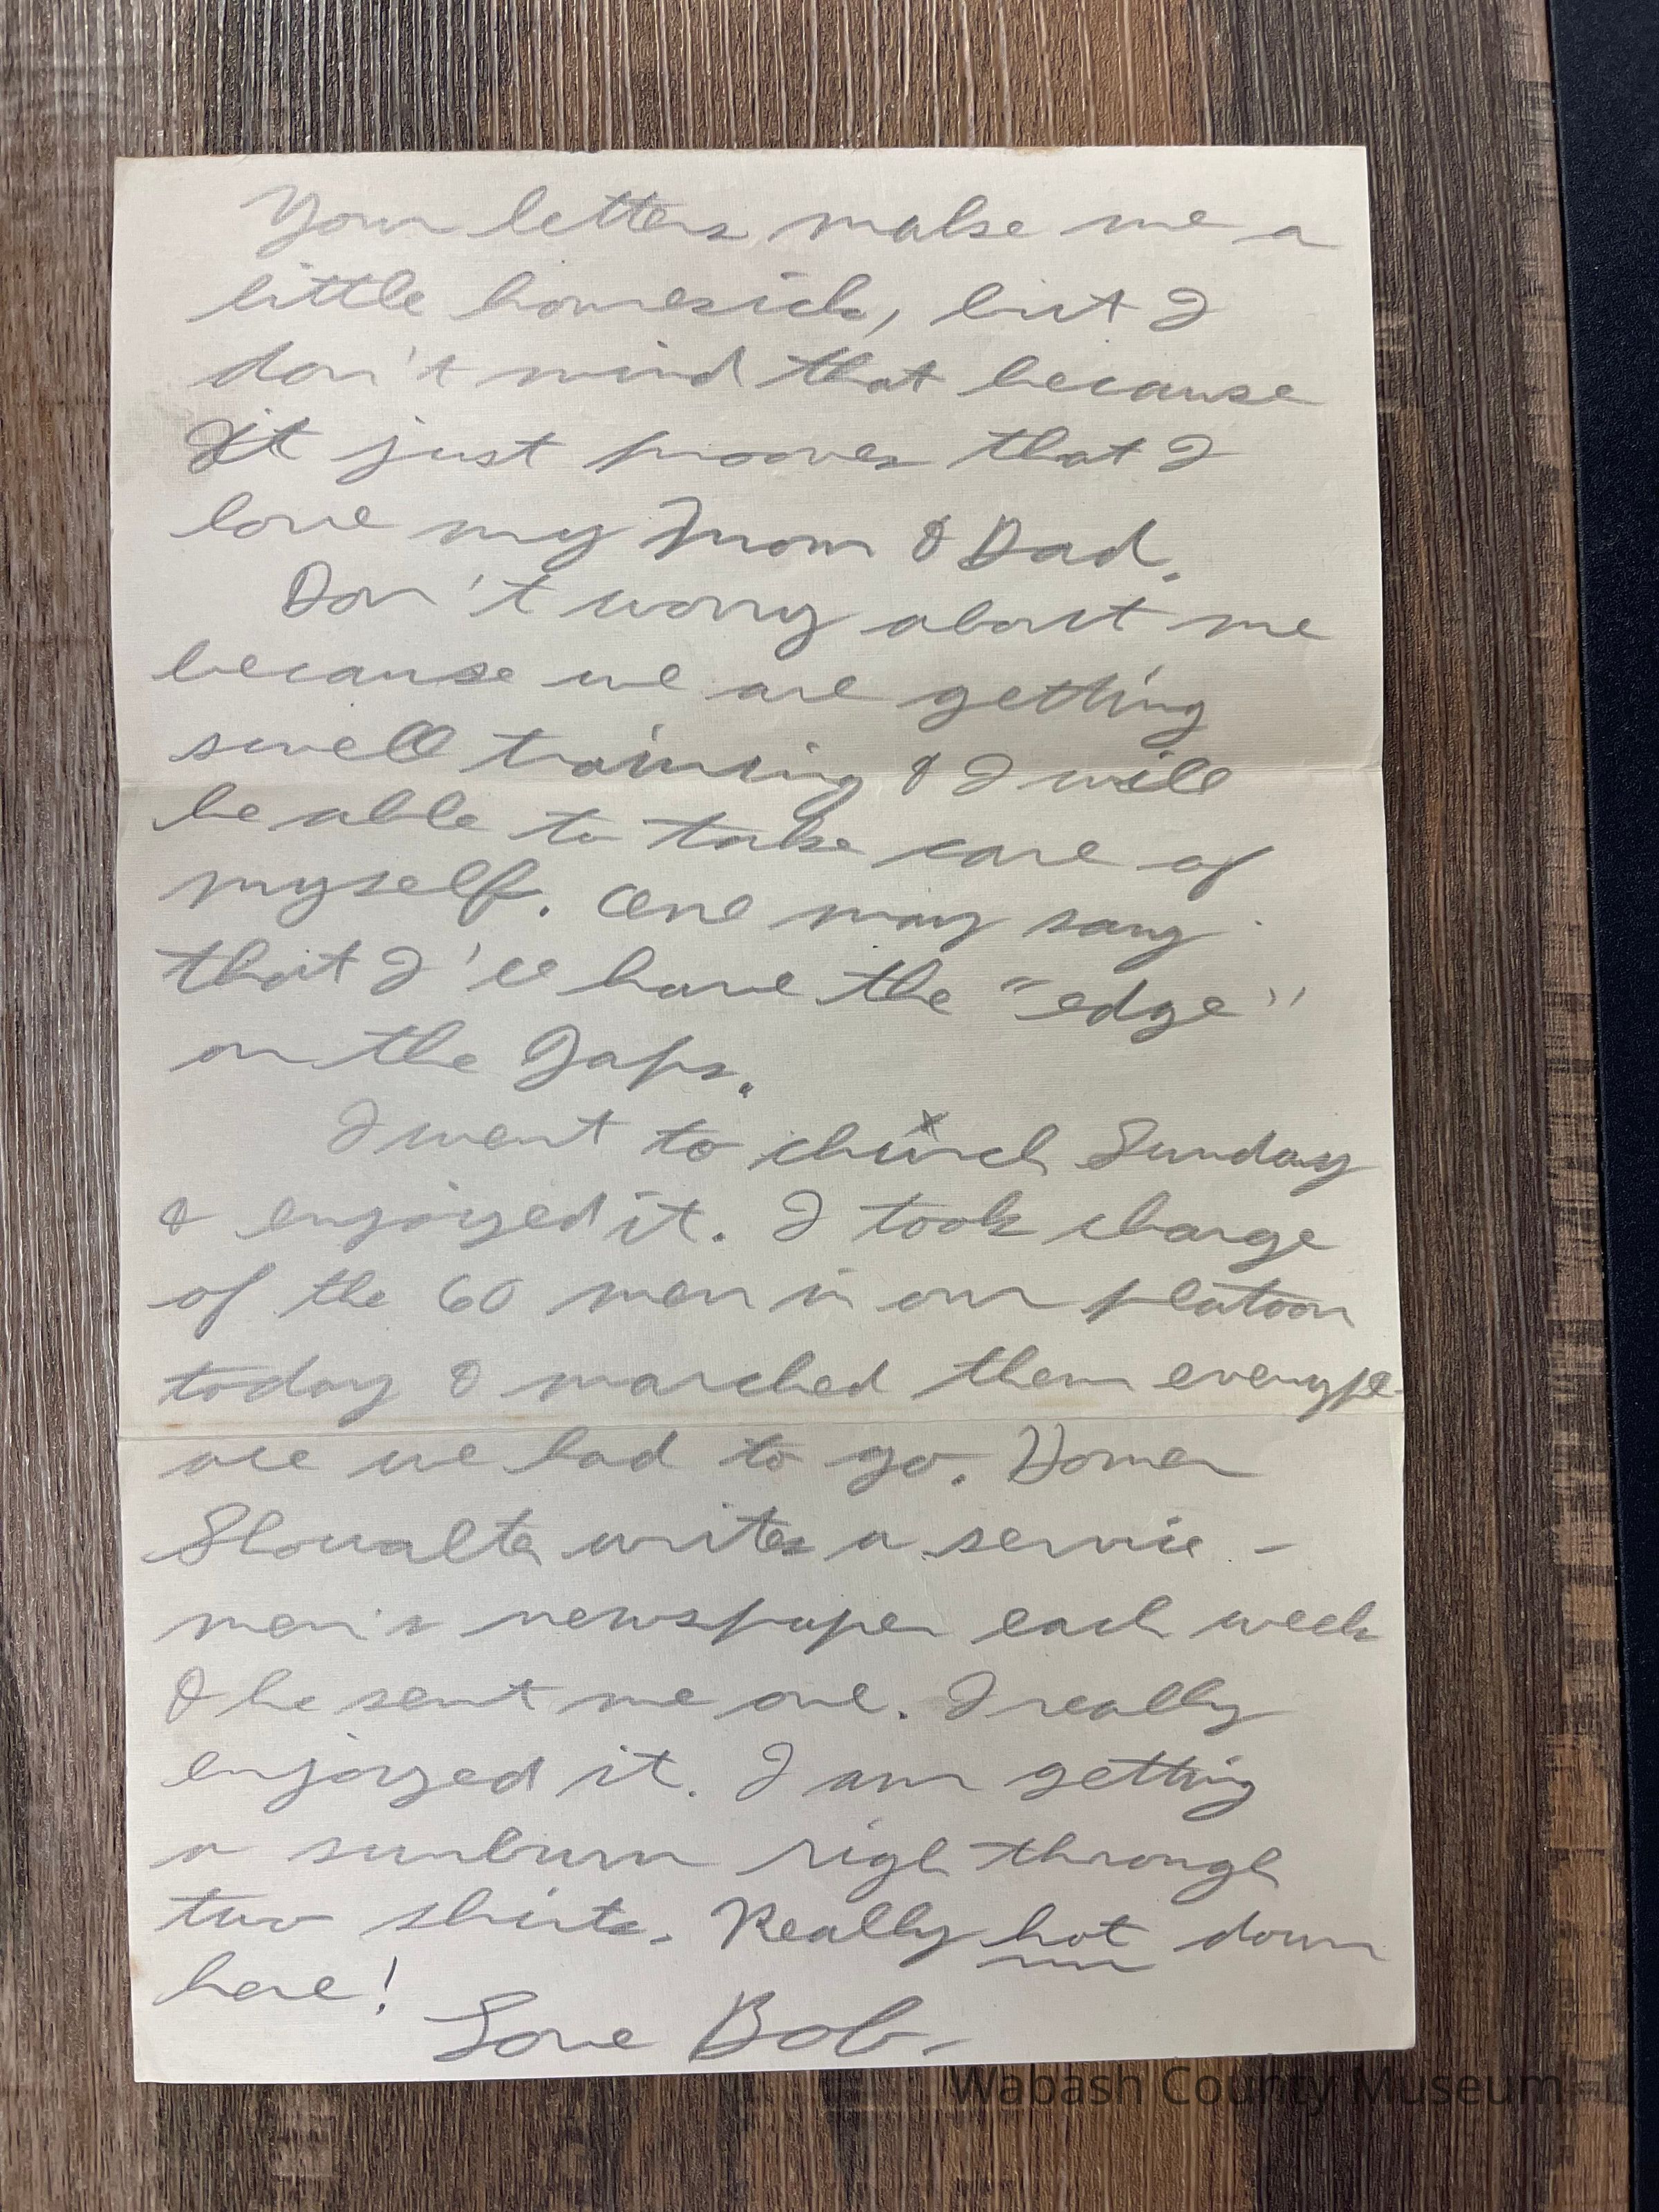 Your letters make me a
little homesick, but I
don't mind that because
It just prooves that I
love my Mom & Dad.
Don't worry about me
because we are getting
swell training & I will
be able to take care of
myself. One may say
that I'll have the "edge"
on the Japs.
I went to church Sunday
& enjoyed it. I took charge
of the 60 men in our platoon
today & marched them everypl-
ace we had to go. Homer
Showalter writes a service-
men's newspaper each week
& he sent me one. I really
enjoyed it. I am getting
a sunburn righ through
two shirts. Really hot down
here!
Love Bob.
Wabash County Museum